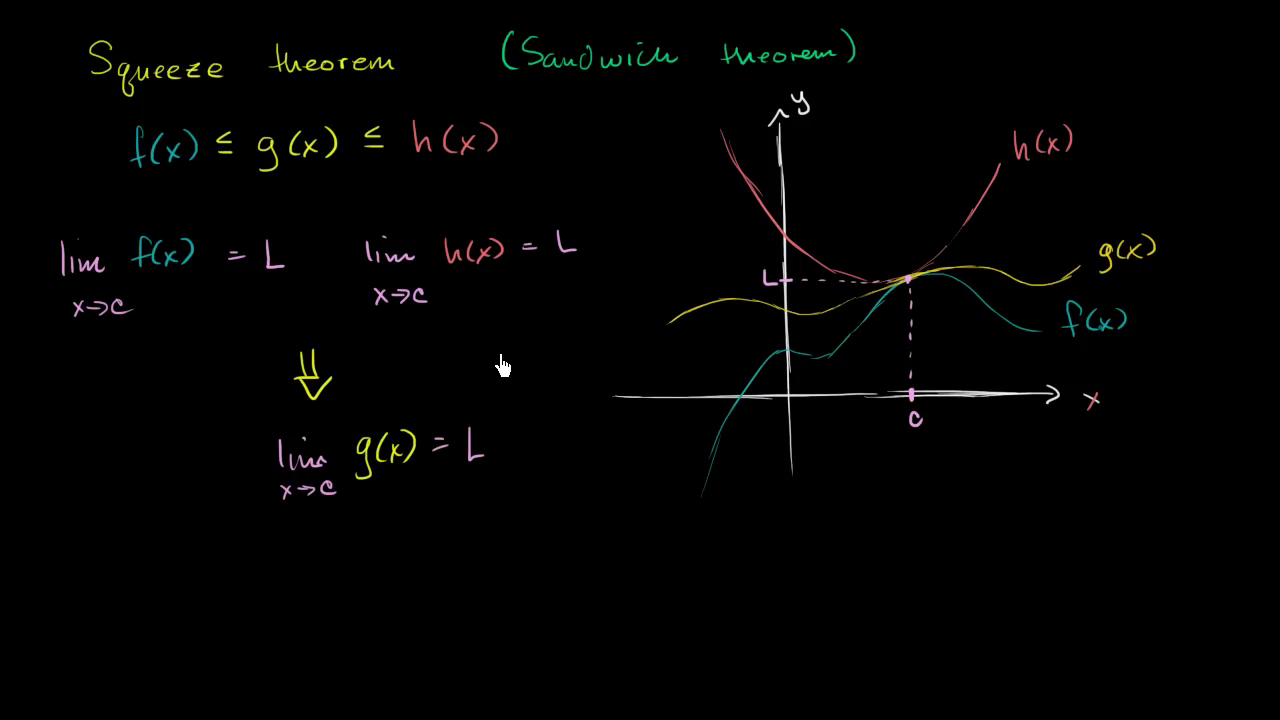 Squeeze theorem (Sandwich theorem)
f(x) ≤ g(x) ≤ h(x)
lim x→c f(x) = L lim x→c h(x) = L
⇓
lim x→c g(x) = L
y
h(x)
g(x)
L
f(x)
x
c